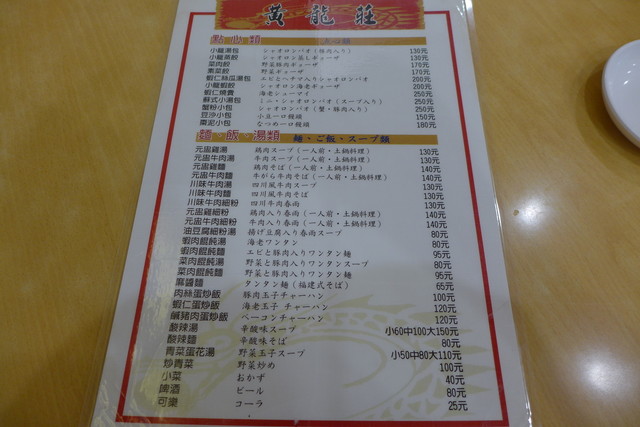 黃龍莊
點心類 点心類
小籠湯包 シャオロンパオ(豚肉入り) 130元
小籠蒸餃 シャオロン蒸しギョーザ 130元
菜肉餃 野菜豚肉ギョーザ 170元
素菜餃 野菜ギョーザ 170元
蝦仁絲瓜湯包 エビとヘチマ入りシャオロンパオ 200元
小籠蝦餃 シャオロン海老ギョーザ 200元
蝦仁燒賣 海老シューマイ 250元
蘇式小湯包 ミニ・シャオロンパオ(スープ入り) 250元
蟹粉小包 シャオロンパオ(蟹・豚肉入り) 250元
豆沙小包 小豆一口饅頭 150元
棗泥小包 なつめ一口饅頭 180元
麵・飯・湯類 麺・ご飯・スープ類
元盅雞湯 鶏肉スープ(一人前・土鍋料理) 130元
元盅牛肉湯 牛肉スープ(一人前・土鍋料理) 130元
元盅雞麵 鶏肉そば(一人前・土鍋料理) 140元
元盅牛肉麵 牛がら肉そば(一人前・土鍋料理) 140元
川味牛肉湯 四川風牛肉スープ 130元
川味牛肉麵 四川風牛肉そば 130元
川味牛肉細粉 四川牛肉春雨 130元
元盅雞細粉 鶏肉入り春雨(一人前・土鍋料理) 140元
元盅牛肉細粉 牛肉入り春雨(一人前・土鍋料理) 140元
油豆腐細粉湯 揚げ豆腐入り春雨スープ 80元
蝦肉餛飩湯 海老ワンタン 80元
蝦肉餛飩麵 エビと豚肉入りワンタン麺 95元
菜肉餛飩湯 野菜と豚肉入りワンタンスープ 80元
菜肉餛飩麵 野菜と豚肉入りワンタン麺 95元
麻醬麵 タンタン麺(福建式そば) 65元
肉絲蛋炒飯 豚肉玉子チャーハン 100元
蝦仁蛋炒飯 海老玉子 チャーハン 120元
鹹豬肉蛋炒飯 ベーコンチャーハン 120元
酸辣湯 辛酸味スープ 小60中100大150元
酸辣麵 辛酸味そば 80元
青菜蛋花湯 野菜玉子スープ 小50中80大110元
炒青菜 野菜炒め 100元
小菜 おかず 40元
啤酒 ビール 80元
可樂 コーラ 25元